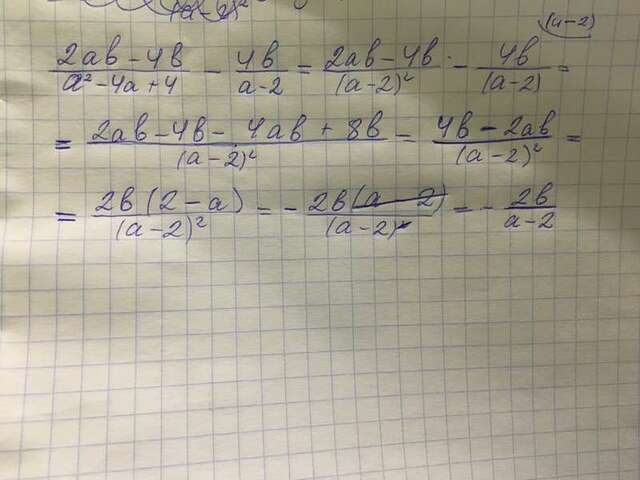 (a-2)²
(a-2)
(2ab-4b)/(a²-4a+4) - 4b/(a-2) = (2ab-4b)/(a-2)² - 4b/(a-2) =
= (2ab-4b-4ab+8b)/(a-2)² = (4b-2ab)/(a-2)² =
= 2b(2-a)/(a-2)² = - 2b(a-2)/(a-2)² = - 2b/(a-2)